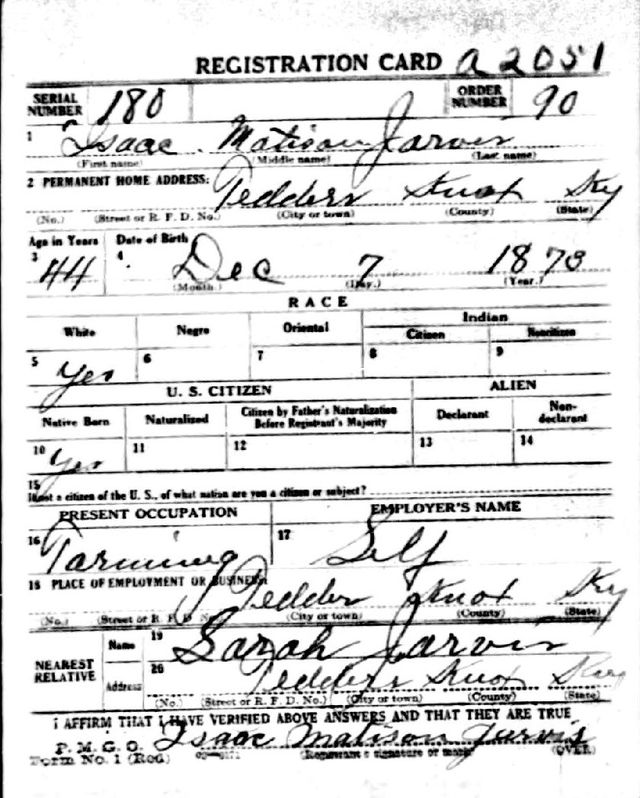 REGISTRATION CARD A2051
SERIAL NUMBER 180 ORDER NUMBER 90
1 Isaac Matison Jarvis
(First name) (Middle name) (Last name)
2 PERMANENT HOME ADDRESS: Tedders Knox Ky
(No.) (Street or R. F. D. No.) (City or town) (County) (State)
Age in Years Date of Birth
3 44 4 Dec 7 1873
(Month.) (Day.) (Year.)
RACE
White Negro Oriental Indian
Citizen Noncitizen
5 Yes 6 7 8 9
U. S. CITIZEN ALIEN
Native Born Naturalized Citizen by Father's Naturalization Before Registrant's Majority Declarant Non-declarant
10 Yes 11 12 13 14
15
If not a citizen of the U. S., of what nation are you a citizen or subject?
PRESENT OCCUPATION EMPLOYER'S NAME
16 Farming 17 Self
18 PLACE OF EMPLOYMENT OR BUSINESS: Tedders Knox Ky
(No.) (Street or R. F. D. No.) (City or town) (County) (State)
NEAREST RELATIVE Name 19 Sarah Jarvis
Address 20 Tedders Knox Ky
(No.) (Street or R. F. D. No.) (City or town) (County) (State)
I AFFIRM THAT I HAVE VERIFIED ABOVE ANSWERS AND THAT THEY ARE TRUE
P. M. G. O. Isaac Matison Jarvis
Form No. 1 (Red) (Registrant's signature or mark) (OVER)